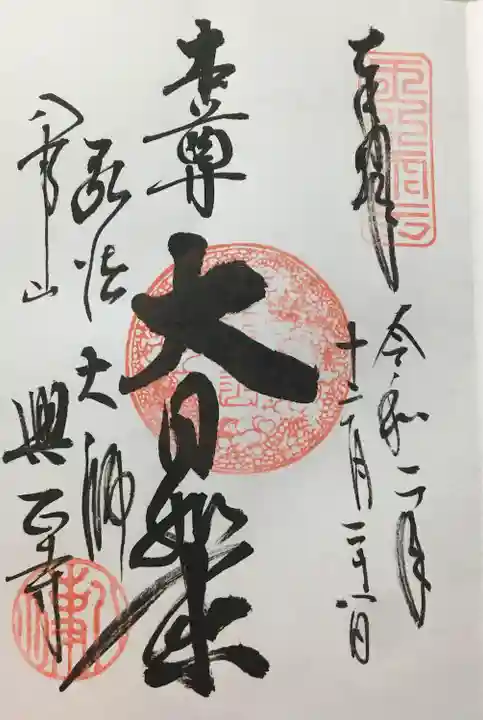 奉拝
令和二年
十二月二十一日
本尊
大日如来
弘法大師
八事山
興正寺